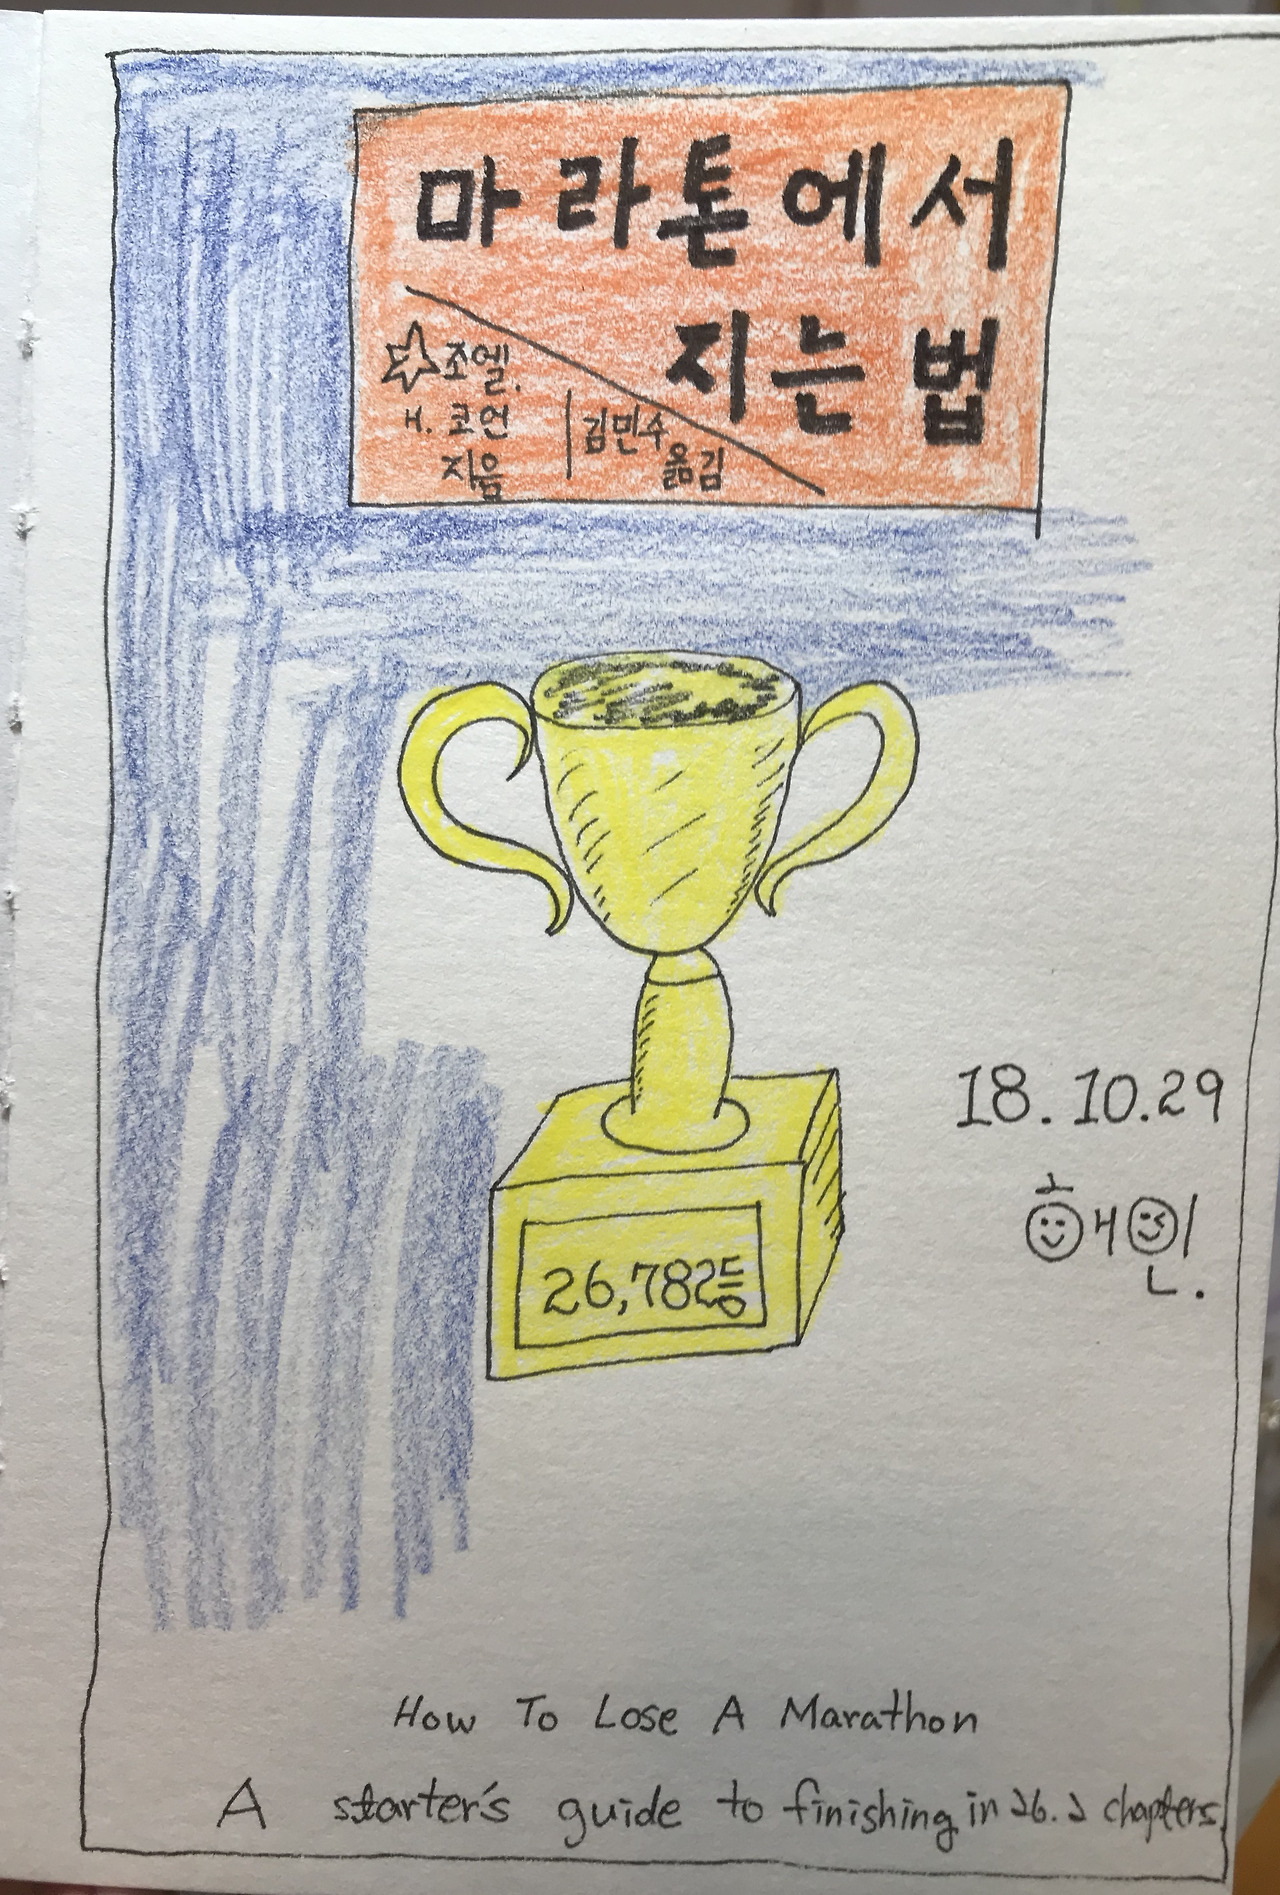 마라톤에서
지는 법
조엘.
H. 코언
지음
김민수
옮김
26,782등
18.10.29
해인.
How To Lose A Marathon
A starter's guide to finishing in 26.2 chapters